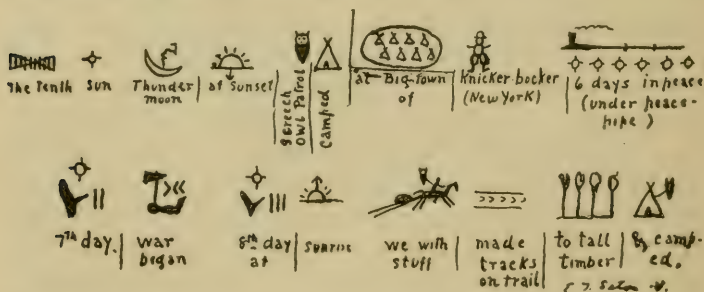 The Tenth Sun Thunder moon at Sunset Screech Owl Patrol Camped at Big town of Knicker-bocker (New York) 6 days in peace (under peace-pipe)
7TH day. war began 8TH day at Sunrise we with stuff made tracks on trail to tall timber & camp-ed.
E. T. Seton